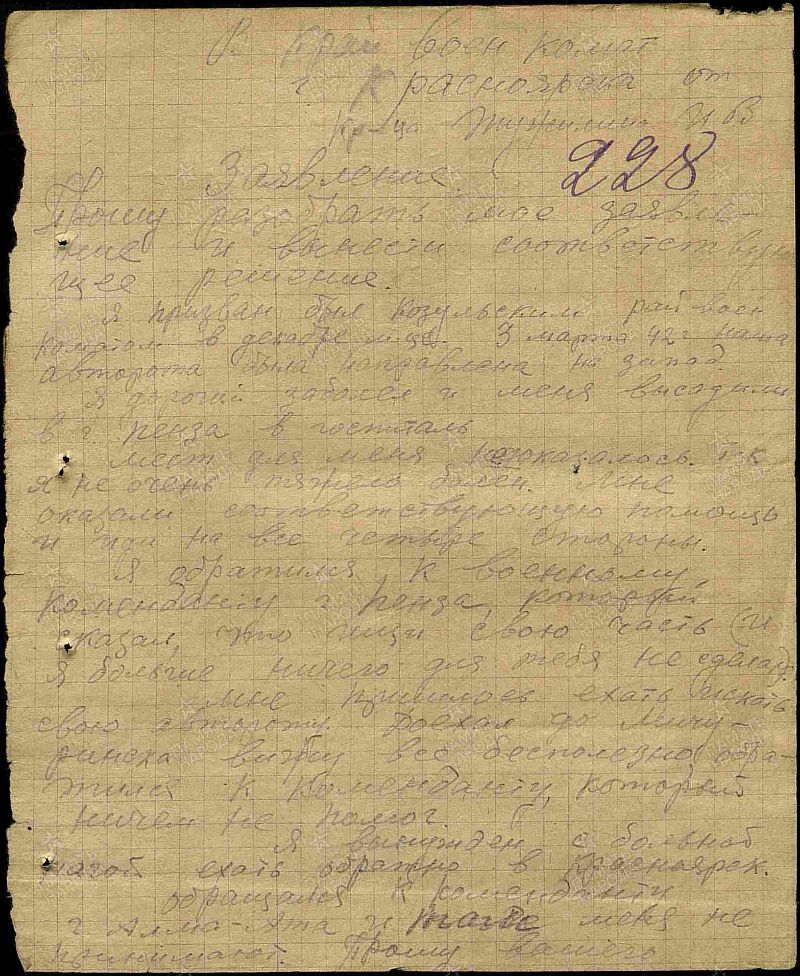 В Край воен комат
г Красноярска от
кр-ца И В
228
Заявление.
Прошу разобрать мое заявле-
ние и вынести соответствую
щее решение.
Я призван был Козульским рай воен
коматом в декабре м-це. 3 марта 42 г наша
авторота была направлена на запад.
Я дорогой заболел и меня высадили
в г. пенза в госпиталь
мест для меня не оказалось. т.к
я не очень тяжело болен. Мне
оказали соответствующую помощь
и иди на все четыре стороны.
Я обратился к военному
коменданту г пенза, который
сказал, что ищи свою часть
я больше ничего для тебя не сделаю.
Мне пришлось ехать искать
свою автороту. Доехал до Мичу-
ринска вижу все бесполезно обра-
тился к коменданту, который
ничем не помог.
Я вынужден с больной
ногой ехать обратно в Красноярск.
обращался к коменданту
г Алма-Ата и также меня не
принимают. Прошу вашего